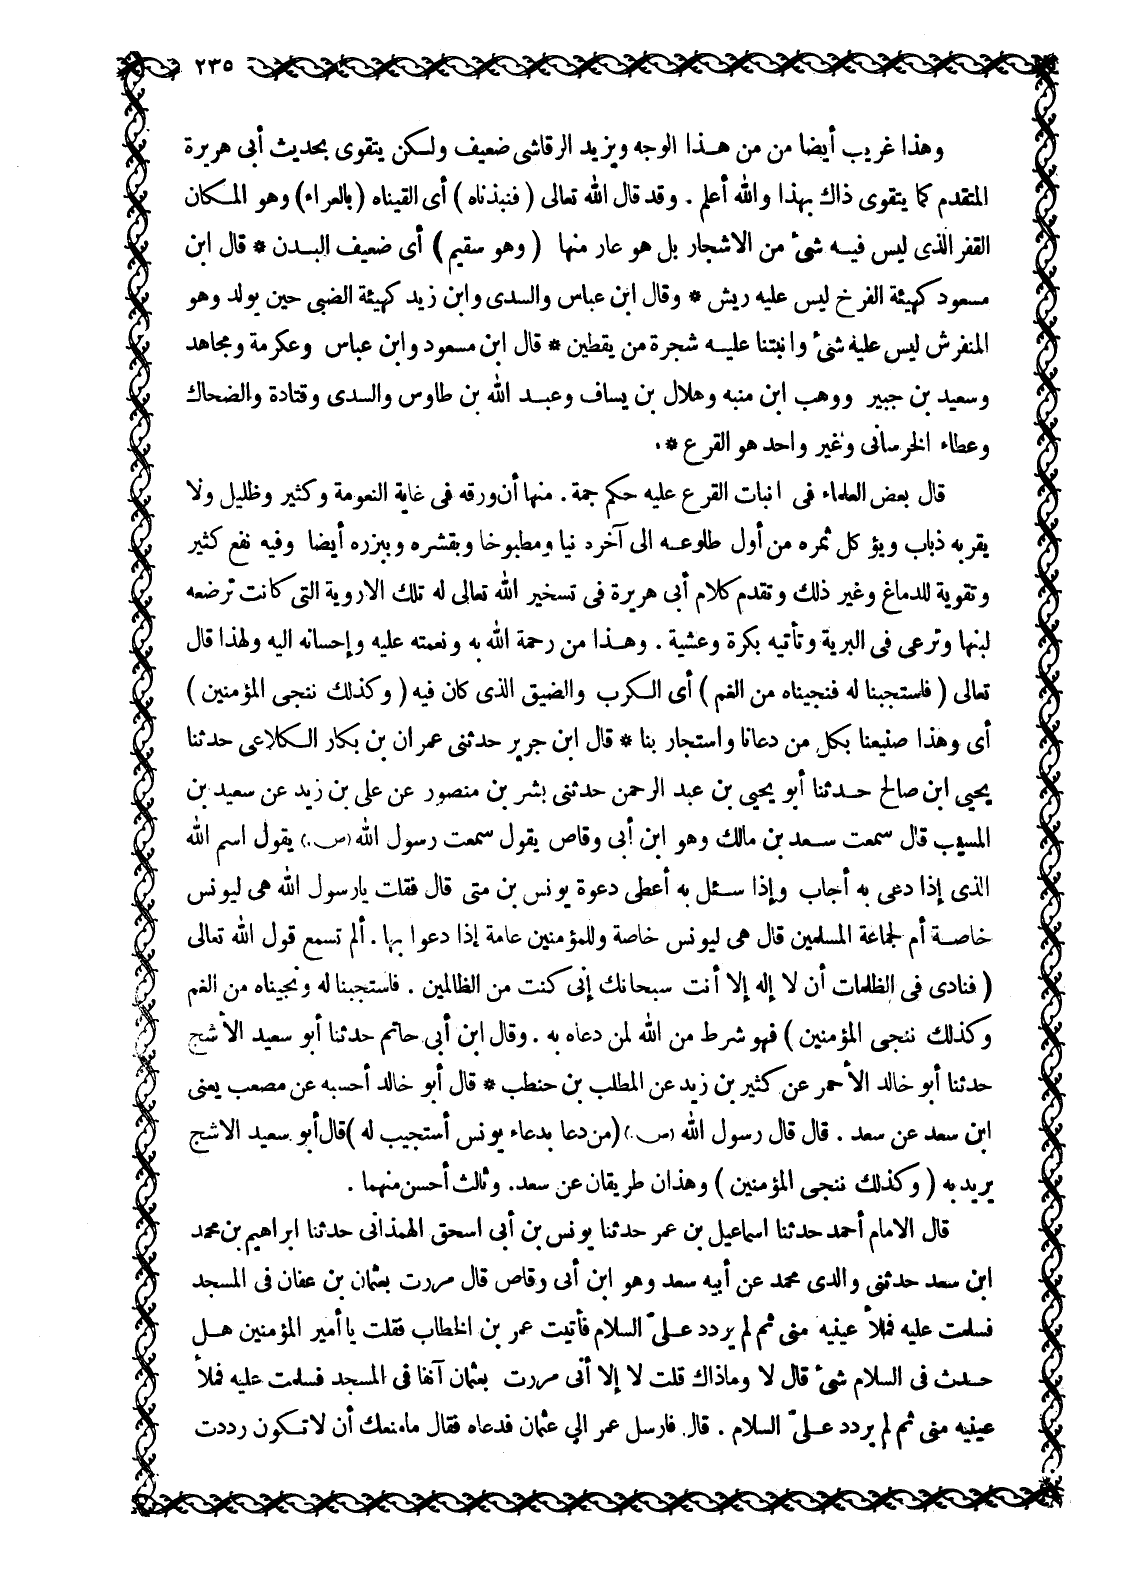 ٢٣٥
وهذا غريب أيضا من من هذا الوجه ويزيد الرقاشى ضعيف ولكن يتقوى بحديث أبى هريرة
المتقدم كما يتقوى ذاك بهذا والله أعلم . وقد قال الله تعالى ( فنبذناه ) أى القيناه ( بالعراء ) وهو المكان
القفر الذى ليس فيه شئ من الاشجار بل هو عار منها ( وهو سقيم ) أى ضعيف البدن * قال ابن
مسعود كهيئة الفرخ ليس عليه ريش * وقال ابن عباس والسدى وابن زيد كهيئة الضبى حين يولد وهو
المنفرش ليس عليه شئ وانبتنا عليه شجرة من يقطين * قال ابن مسعود وابن عباس وعكرمة ومجاهد
وسعيد بن جبير ووهب ابن منبه وهلال بن يساف وعبد الله بن طاوس والسدى وقتادة والضحاك
وعطاء الخرسانى وغير واحد هو القرع *.
قال بعض العلماء فى انبات القرع عليه حكم جمة . منها أن ورقه فى غاية النعومة وكثير وظليل ولا
يقربه ذباب ويؤكل ثمره من أول طلوعه الى آخرد نيا ومطبوخا وبقشره وببزره أيضا وفيه نفع كثير
وتقوية للدماغ وغير ذلك وتقدم كلام أبى هريرة فى تسخير الله تعالى له تلك الاروية التى كانت ترضعه
لبنها وترعى فى البرية وتأتيه بكرة وعشية . وهذا من رحمة الله به ونعمته عليه وإحسانه اليه ولهذا قال
تعالى ( فاستجبنا له فنجيناه من الغم ) أى الكرب والضيق الذى كان فيه ( وكذلك ننجى المؤمنين )
أى وهذا صنيعنا بكل من دعانا واستجار بنا * قال ابن جرير حدثنى عمران بن بكار الكلاعى حدثنا
يحيى ابن صالح حدثنا أبو يحيى بن عبد الرحمن حدثنى بشر بن منصور عن على بن زيد عن سعيد بن
المسيب قال سمعت سعد بن مالك وهو ابن أبى وقاص يقول سمعت رسول الله (ص.) يقول اسم الله
الذى إذا دعى به أجاب وإذا سئل به أعطى دعوة يونس بن متى قال فقلت يارسول الله هى ليونس
خاصة أم لجماعة المسلمين قال هى ليونس خاصة وللمؤمنين عامة إذا دعوا بها . ألم تسمع قول الله تعالى
( فنادى فى الظلمات أن لا إله إلا أنت سبحانك إنى كنت من الظالمين . فاستجبنا له ونجيناه من الغم
وكذلك ننجى المؤمنين ) فهو شرط من الله لمن دعاه به . وقال ابن أبى حاتم حدثنا أبو سعيد الأشج
حدثنا أبو خالد الأحمر عن كثير بن زيد عن المطلب بن حنطب * قال أبو خالد أحسبه عن مصعب يعنى
ابن سعد عن سعد . قال قال رسول الله (ص.) (من دعا بدعاء يونس أستجيب له ) قال أبو سعيد الاشج
يريد به ( وكذلك ننجى المؤمنين ) وهذان طريقان عن سعد. وثالث أحسن منهما .
قال الامام أحمد حدثنا اسماعيل بن عمر حدثنا يونس بن أبى اسحق الهمذانى حدثنا ابراهيم بن محمد
ابن سعد حدثنى والدى محمد عن أبيه سعد وهو ابن أبى وقاص قال مررت بعثمان بن عفان فى المسجد
فسلمت عليه فملأ عينيه منى ثم لم يردد علىّ السلام فأتيت عمر بن الخطاب فقلت يا أمير المؤمنين هل
حدث فى السلام شئ قال لا وماذاك قلت لا إلا أنى مررت بعثمان آنفا فى المسجد فسلمت عليه فملأ
عينيه منى ثم لم يردد علىّ السلام . قال فارسل عمر الى عثمان فدعاه فقال مامنعك أن لا تكون رددت